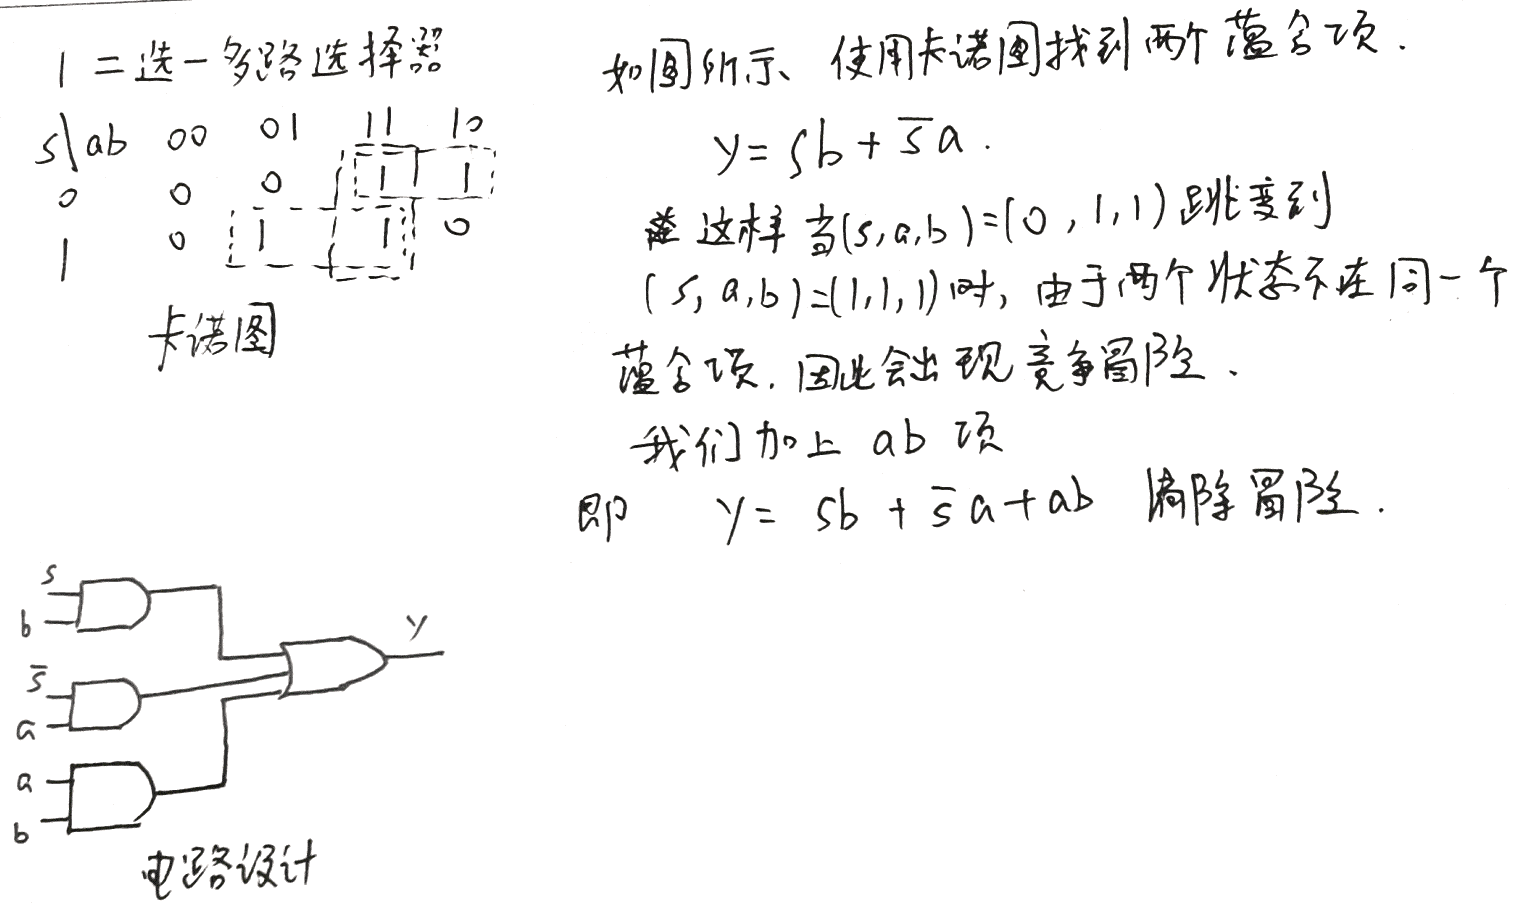 1 二选一多路选择器
s\ab 00 01 11 10
0 0 0 1 1
1 0 1 1 0
卡诺图
如图所示、使用卡诺图找到两个蕴含项.
y = sb + s̅a.
这样当(s,a,b)=(0,1,1)跳变到
(s,a,b)=(1,1,1)时,由于两个状态不在同一个
蕴含项.因此会出现竞争冒险.
我们加上 ab 项
即 y = sb + s̅a + ab 消除冒险.
s
b
s̅
a
a
b
y
电路设计